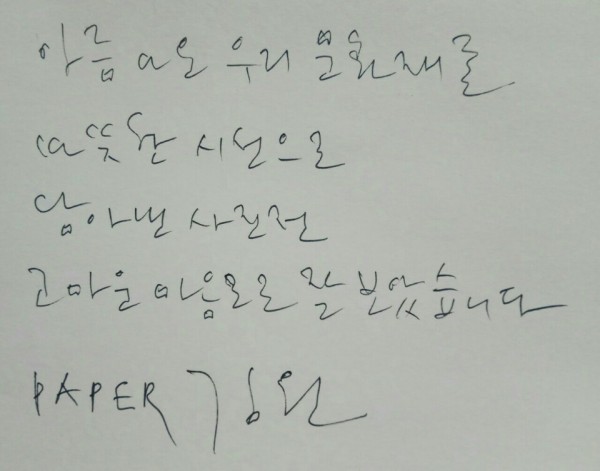 아름다운 우리 문화재를
따뜻한 시선으로
담아낸 사진전
고마운 마음으로 잘 보았습니다
PAPER 김원